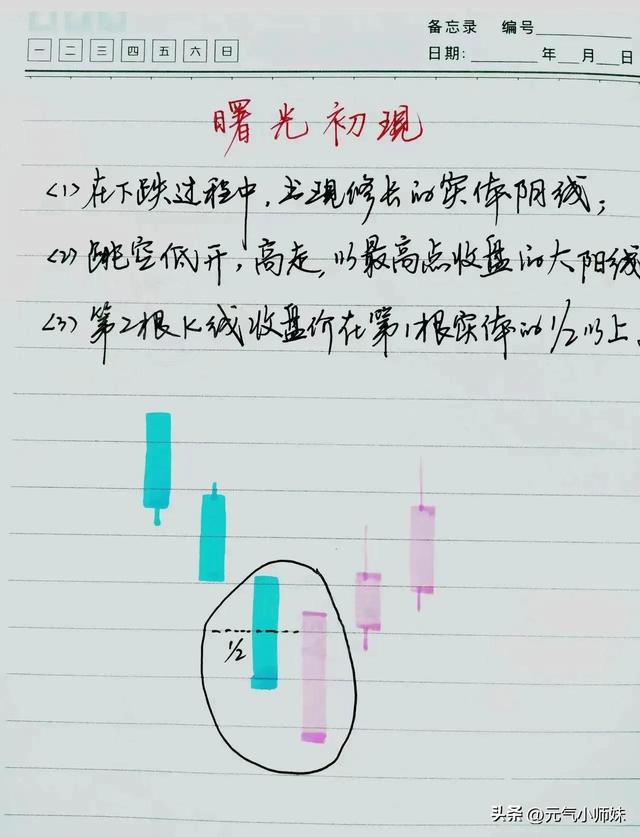 备忘录 编号
一 二 三 四 五 六 日
日期: 年 月 日
曙光初现
<1>在下跌过程中,出现修长的实体阴线;
<2>跳空低开,高走,以最高点收盘的大阳线
<3>第2根K线收盘价在第1根实体的1/2以上。
1/2
头条 @元气小师妹